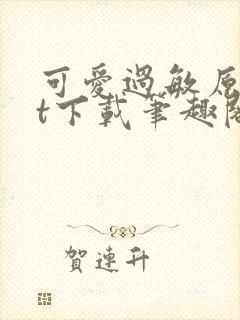 可愛過敏原
t下載筆趣閣
賀連升